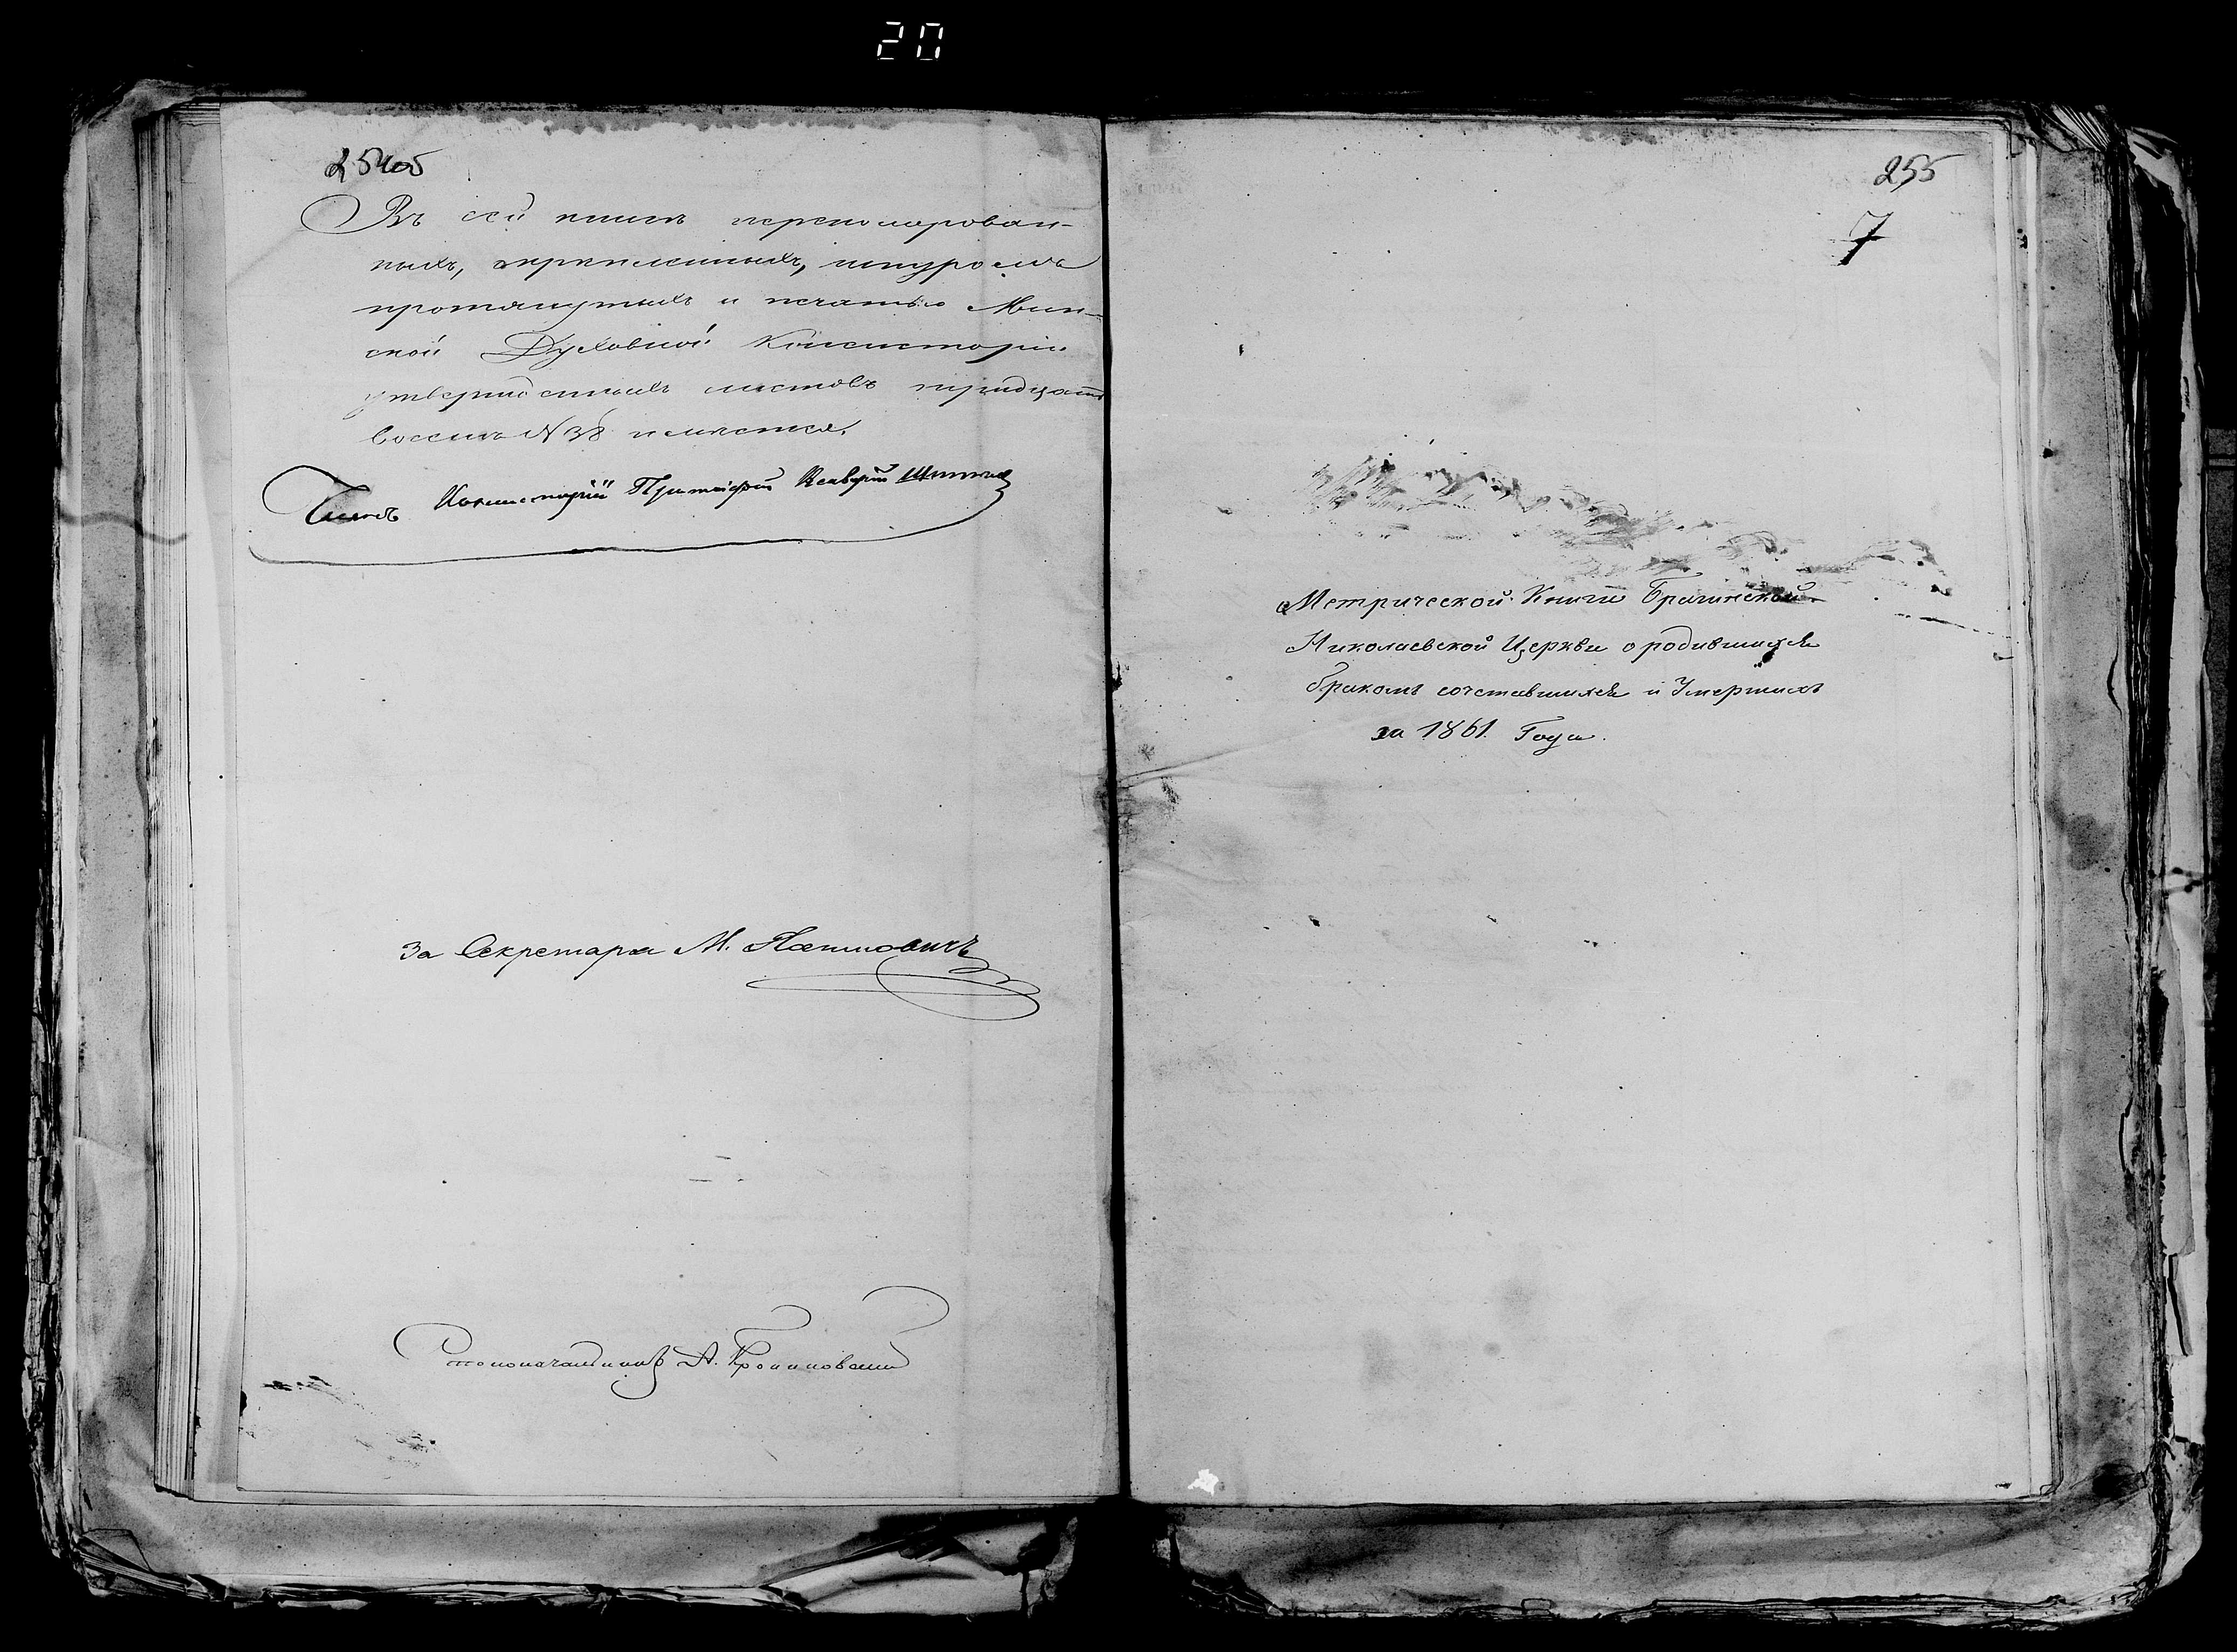 20
254об
Въ сей книгѣ перенумерован-
ныхъ, скрѣпленныхъ, шнуромъ
протянутыхъ и печатью Мин-
ской Духовной Консисторіи
утвержденныхъ листовъ тридцать
восемь № 38 имѣется.
Членъ Консисторіи Протоіерей
За Секретаря М.
Столоначальникъ А.
255
7
Метрической Книги Брагинской
Николаевской Церкви о родившихся
бракомъ сочетавшихся и Умершихъ
за 1861. Годъ.